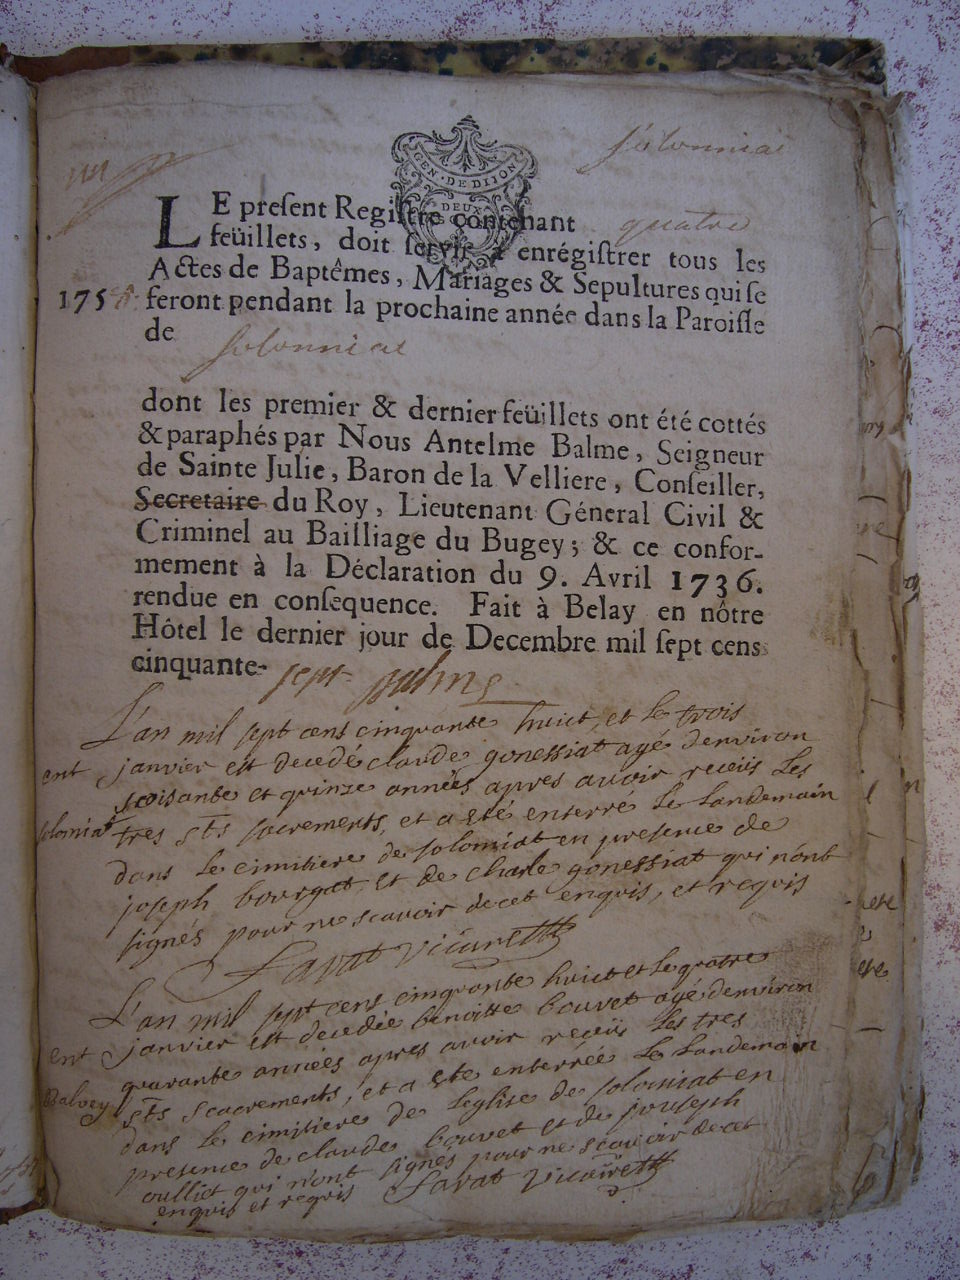 Solonniat
GEN. DE DIJON
DEUX
LE present Registre contenant quatre
feüillets, doit servir à enrégistrer tous les
Actes de Baptêmes, Mariages & Sepultures qui se
1758. feront pendant la prochaine année dans la Paroisse
de
solonniat
dont les premier & dernier feüillets ont été cottés
& paraphés par Nous Antelme Balme, Seigneur
de Sainte Julie, Baron de la Velliere, Conseiller,
Secretaire du Roy, Lieutenant Géneral Civil &
Criminel au Bailliage du Bugey; & ce confor-
mement à la Déclaration du 9. Avril 1736.
rendue en consequence. Fait à Belay en nôtre
Hôtel le dernier jour de Decembre mil sept cens
cinquante-sept Balme
L'an mil sept cens cinquante huict, et le trois
ent janvier est decedé claude gonessiat agé denviron
soisante et quinze années apres avoir receüs les
solomiat tres sts sacrements, et a eté enterré le landemain
dans le cimitiere de solomiat en presence de
joseph bourgat et de charle gonessiat qui n'ont
signés pour ne scavoir de cet enquis, et requis
Savat vicaire
L'an mil sept cens cinquante huict et le quatre
ent janvier est decedée benoitte bouvet agé denviron
quarante années apres avoir receüs les tres
Balvey sts scacrements, et a eté enterrée le landemain
dans le cimitiere de leglise de solomiat en
presence de claude bouvet et de jouseph
oulliet qui n'ont signés pour ne scavoir de cet
enquis et requis Savat vicaire